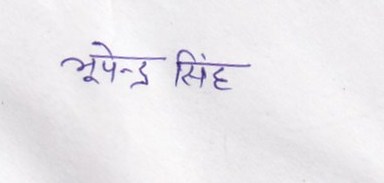 भूपेन्द्र सिंह